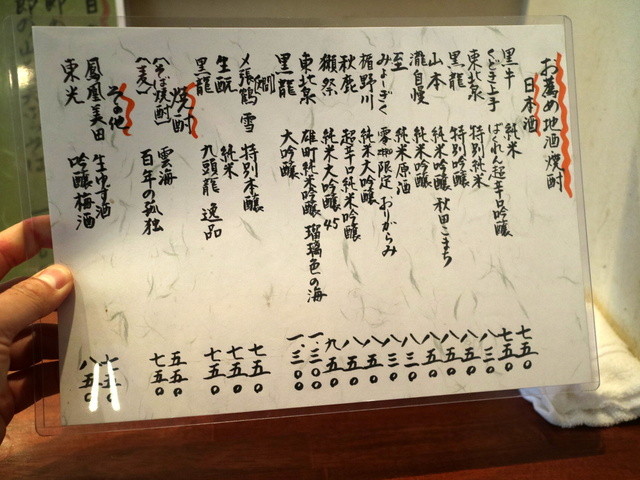 お薦め地酒・焼酎
日本酒
黒牛 純米 七五〇
くどき上手 ばくれん超辛口吟醸 七五〇
東北泉 特別純米 八三〇
黒龍 特別吟醸 八五〇
山本 純米吟醸 秋田こまち 八五〇
瀧自慢 純米吟醸 八五〇
至 純米原酒 八三〇
みよしぎく 零 限定 おりがらみ 八三〇
楯野川 純米大吟醸 八五〇
秋鹿 超辛口純米吟醸 八五〇
獺祭 純米大吟醸 45 九五〇
東北泉 雄町純米吟醸 瑠璃色の海 一.三〇〇
黒龍 大吟醸 一.三〇〇
(燗)
〆張鶴 雪 特別本醸 七五〇
生酛 純米 七五〇
黒龍 九頭龍 逸品 七五〇
焼酎
(そば焼酎) 雲海 五五〇
(麦) 百年の孤独 七五〇
その他
鳳凰美田 生ゆず酒 七五〇
東光 吟醸梅酒 八五〇